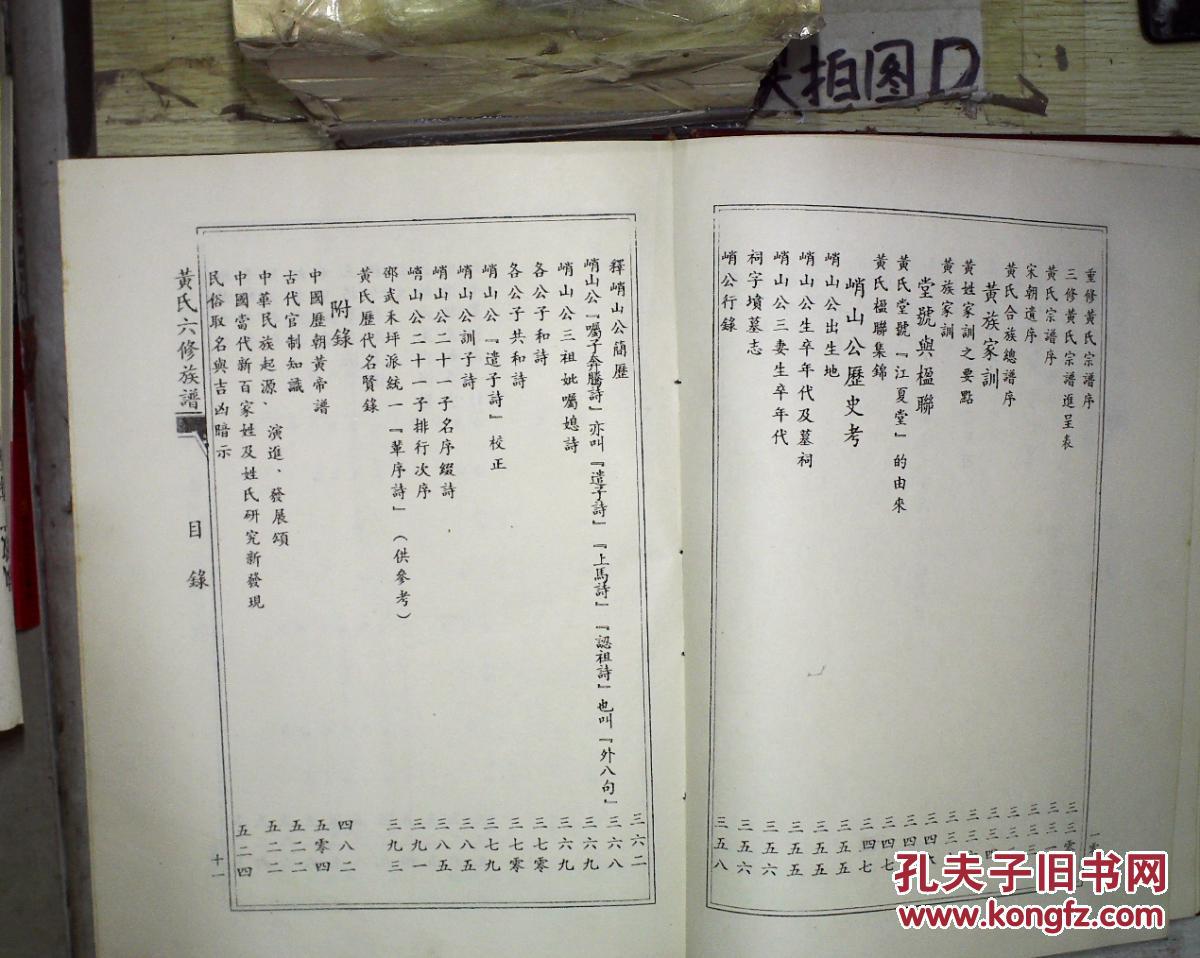 拍图D
重修黃氏宗譜序
三修黃氏宗譜進呈表
黃氏宗譜序
宋朝遺序
黃氏合族總譜序
黃族家訓
黃姓家訓之要點
黃族家訓
堂號與楹聯
黃氏堂號『江夏堂』的由來
黃氏楹聯集錦 三四七
峭山公歷史考 三四七
峭山公出生地 三五五
峭山公生卒年代及墓祠 三五五
峭山公三妻生卒年代 三五六
祠字墳墓志 三五六
峭公行錄 三五八
釋峭山公簡歷 三六二
峭山公『囑子奔騰詩』亦叫『遣子詩』『上馬詩』『認祖詩』也叫『外八句』 三六八
峭山公三祖妣囑媳詩 三六九
各公子和詩 三六九
各公子共和詩 三七零
峭山公『遣子詩』校正 三七零
峭山公訓子詩 三七九
峭山公二十一子名序綴詩 三八五
峭山公二十一子排行次序 三八五
邵武禾坪派統一『輩序詩』(供參考) 三九一
黃氏歷代名賢錄 三九三
附錄
中國歷朝黃帝譜 四八二
古代官制知識 五零四
中華民族起源、演進、發展頌 五二二
中國當代新百家姓及姓氏研究新發現 五二二
民俗取名與吉凶暗示 五二四
黃氏六修族譜
目錄
十一
孔夫子旧书网
www.kongfz.com